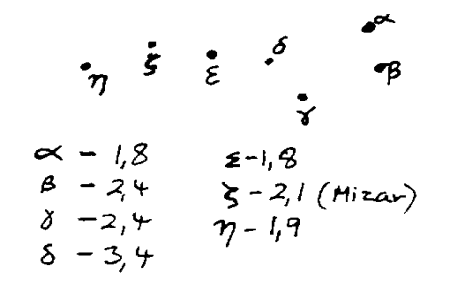 α
δ
ζ
ε
β
η
γ
α - 1,8
β - 2,4
γ - 2,4
δ - 3,4
ε - 1,8
ζ - 2,1 (Mizar)
η - 1,9